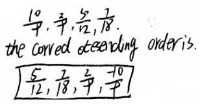 -10/9, 2/9, 5/12, 7/18.
the correct descending order is.
5/12, 7/18, 2/9, -10/9